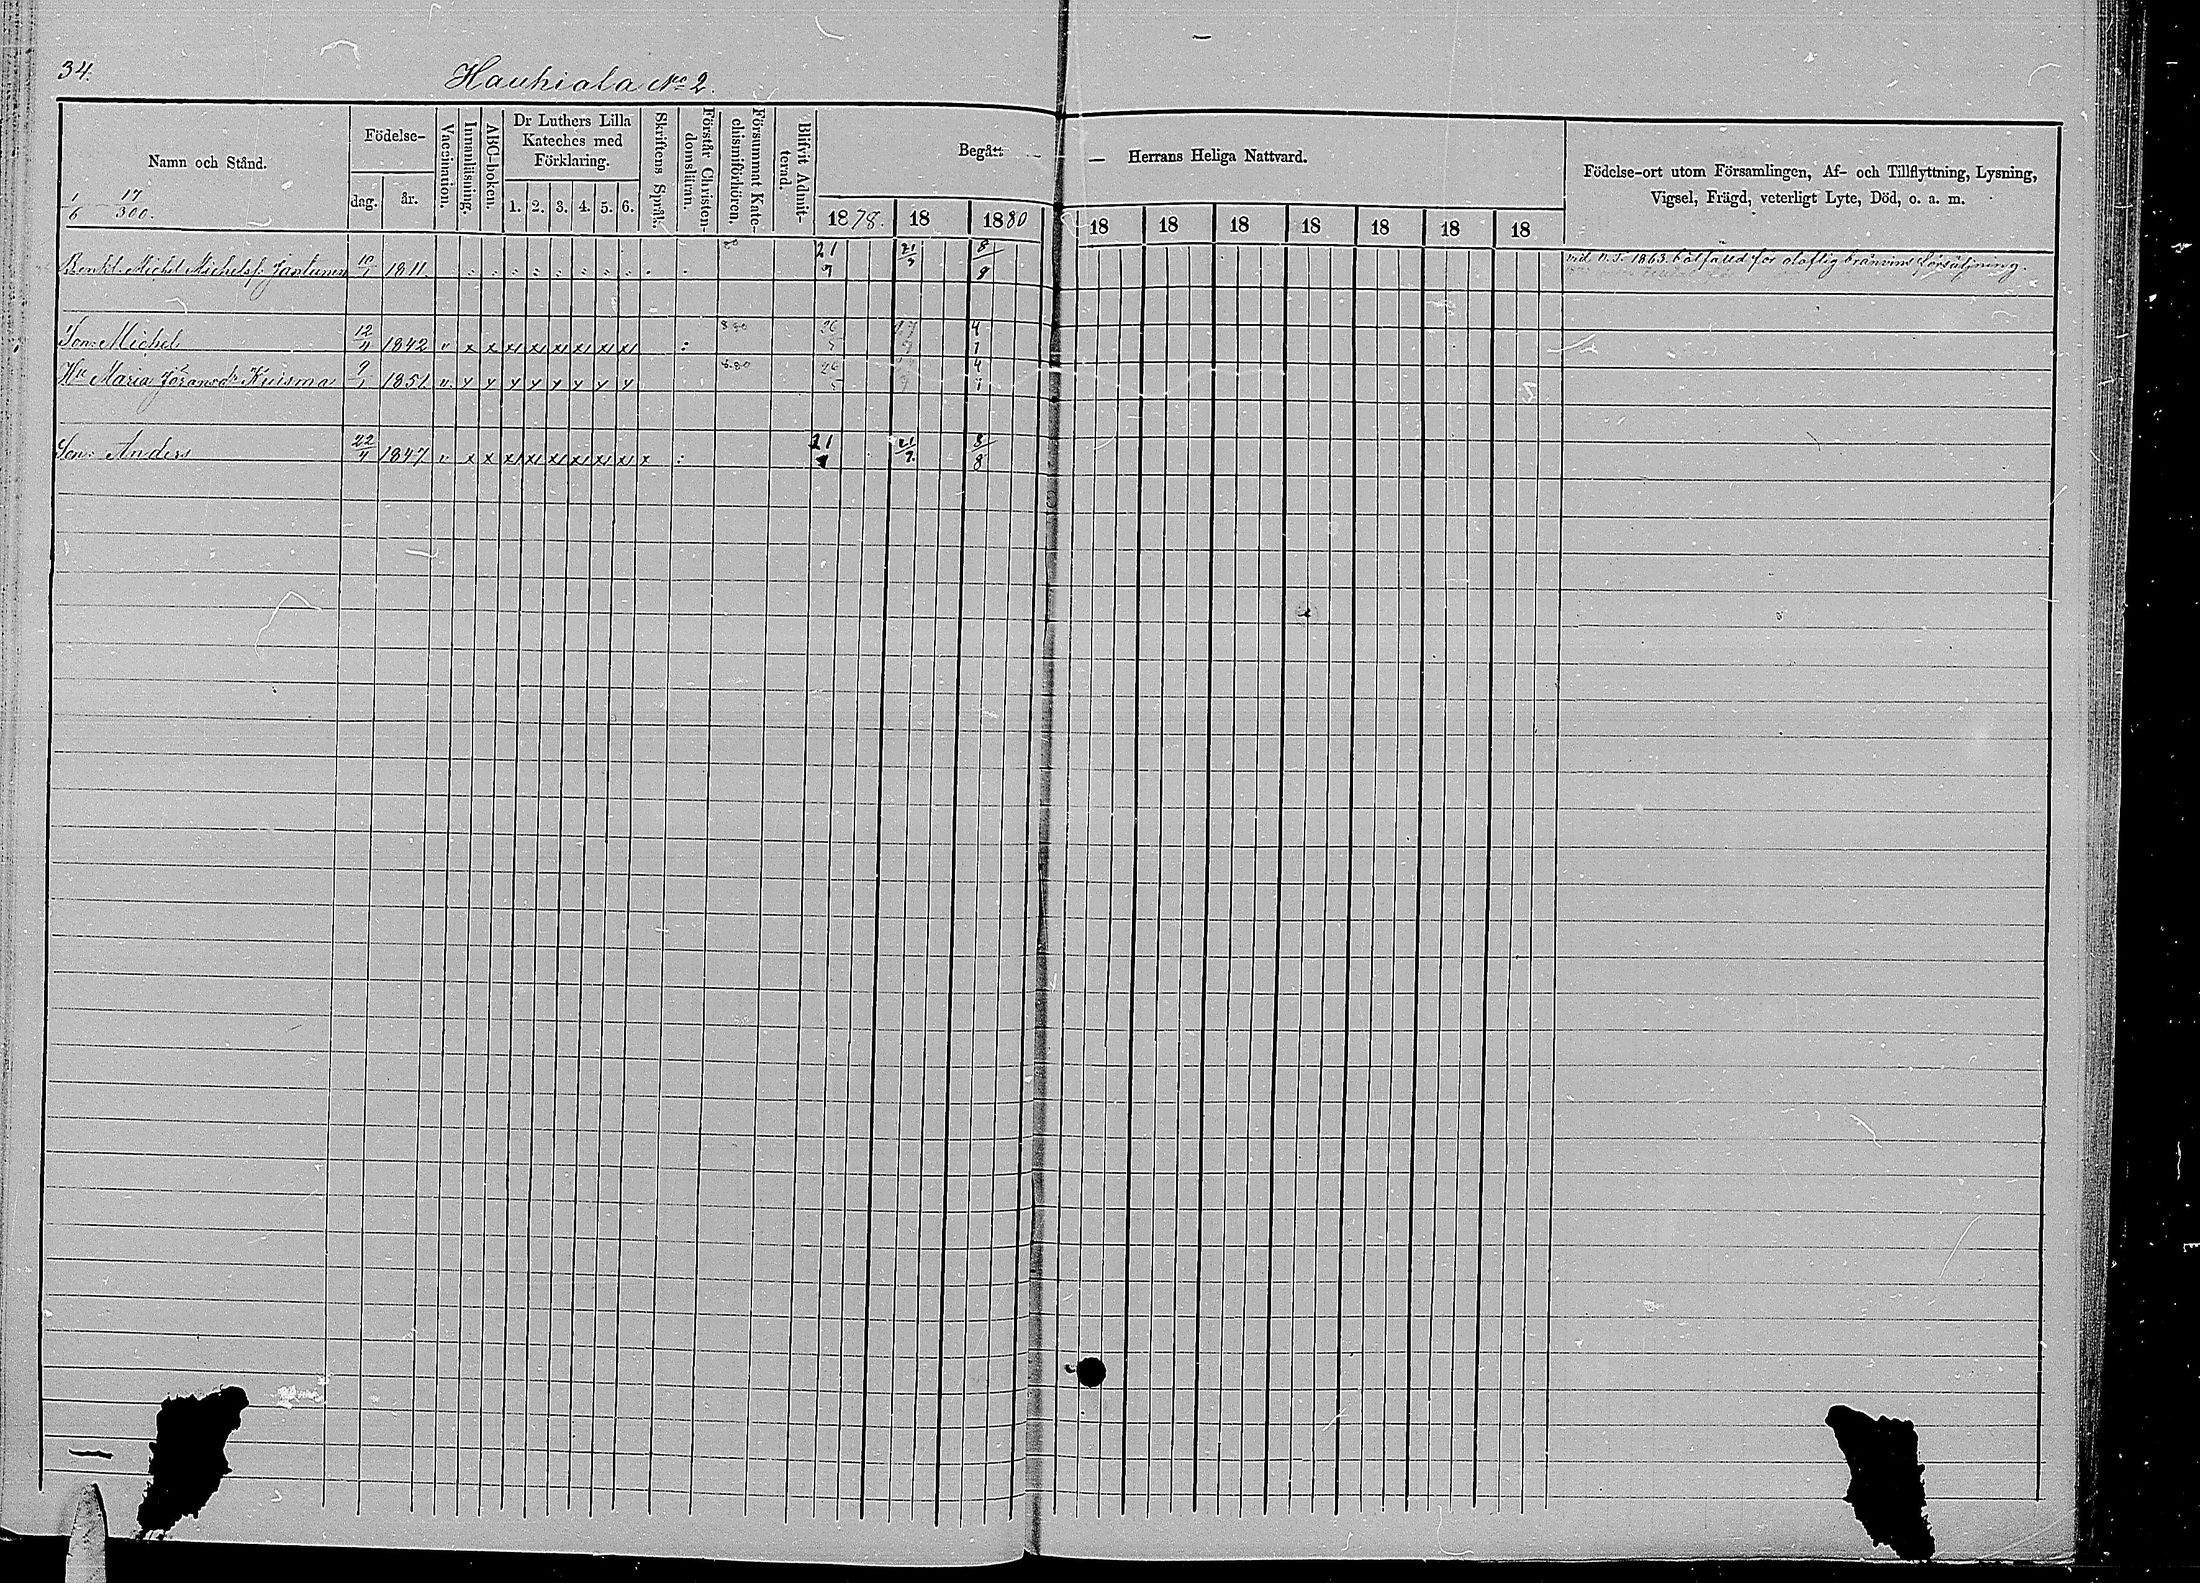 34.
Hauhiala No 2.
Namn och Stånd.
1/6 17/300.
Födelse-
dag.
år.
Vaccination.
Innanläsning.
ABC-boken.
Dr Luthers Lilla
Kateches med
Förklaring.
1. 2. 3. 4. 5. 6.
Skriftens Språk.
Förstår Christen-
domsläran.
Försummat Kate-
chismiförhören.
Blifvit Admit-
terad.
Begått — — Herrans Heliga Nattvard.
1878. 18 1880 18 18 18 18 18 18 18
Födelse-ort utom Församlingen, Af- och Tillflyttning, Lysning,
Vigsel, Frägd, veterligt Lyte, Död, o. a. m.
Michel Michelsf. Jantunen 10/1 1811 80 21/7 21/7 8/8 vid 1863 bötfälld för olaflig bränvins försäljning.
Son: Michel 12/11 1842 " x x x x x x x x : 8.80 26/5 4/1
Hu Maria Göransdr Kuisma 9/1 1851 " 8.80 26/5 4/1
Son: Anders 1847 " x x x x x x x x x : 21/7 21/7 8/8